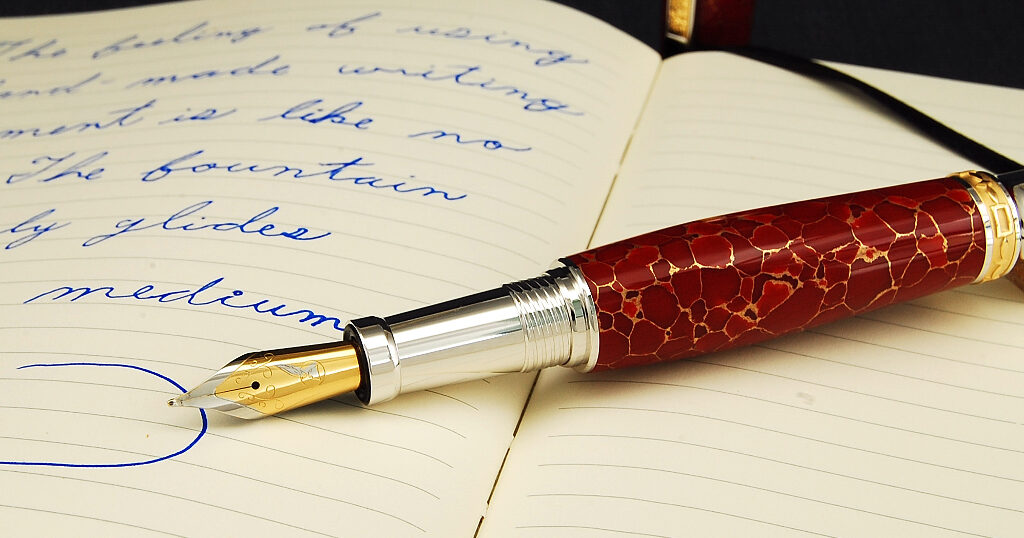 The feeling of using
and-made writing
ment is like no
The fountain
ly glides
medium